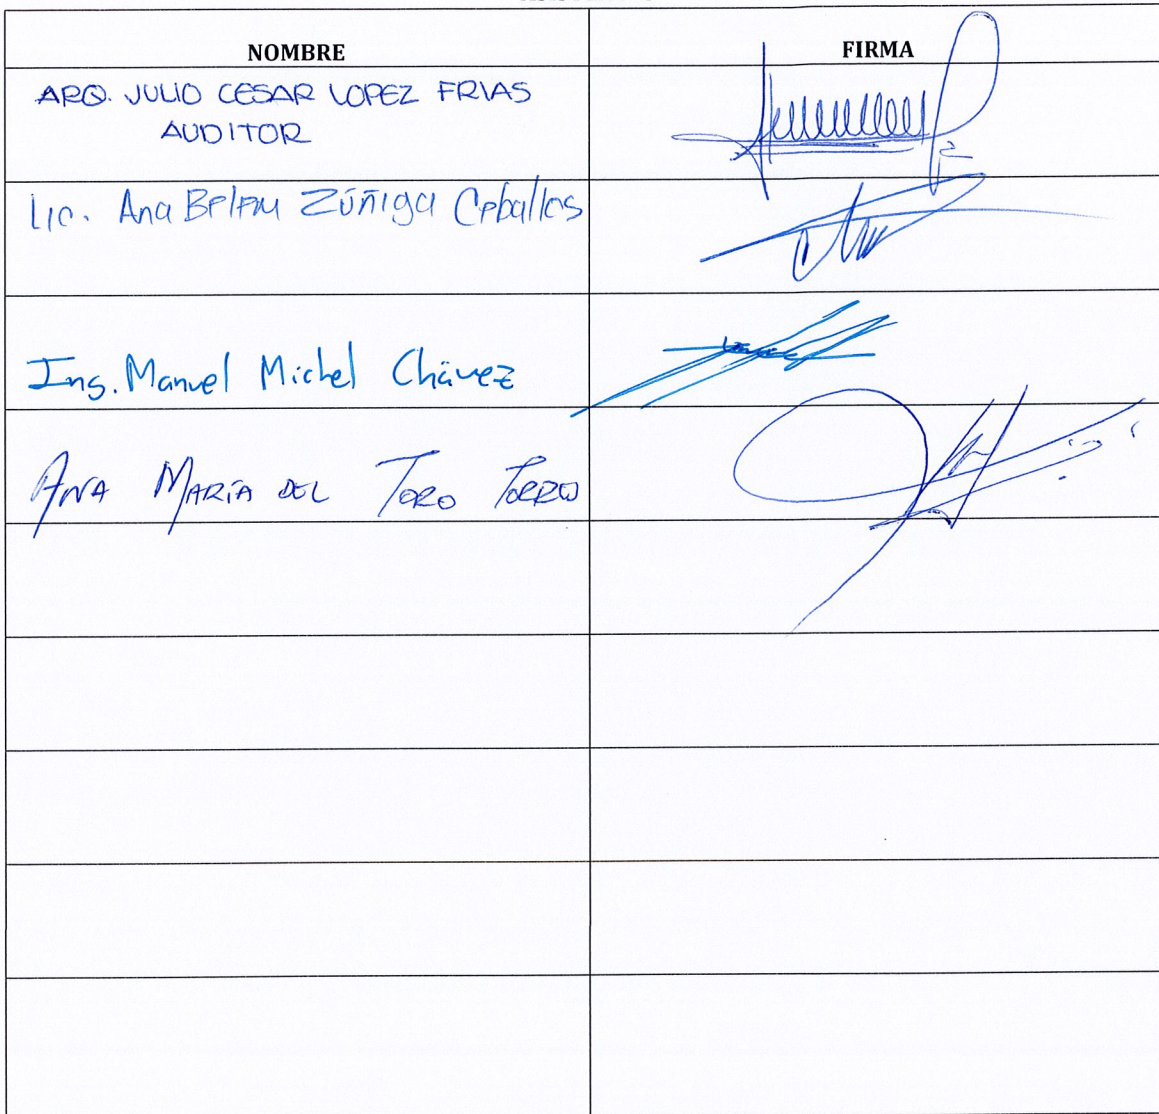 NOMBRE
FIRMA
ARQ. JULIO CESAR LOPEZ FRIAS
AUDITOR
Lic. Ana Belem Zúñiga Ceballos
Ing. Manuel Michel Chávez
ANA MARÍA DEL TORO